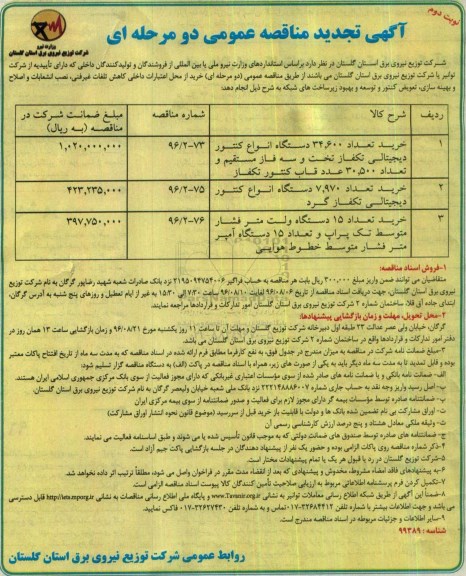 نوبت دوم
آگهی تجدید مناقصه عمومی دو مرحله ای
وزارت نیرو
شرکت توزیع نیروی برق استان گلستان
شرکت توزیع نیروی برق استان گلستان در نظر دارد براساس استانداردهای وزارت نیرو ملی یا بین المللی از فروشندگان و تولیدکنندگان داخلی که دارای تأییدیه از شرکت
توانیر یا شرکت توزیع نیروی برق استان گلستان می باشند از طریق مناقصه عمومی (دو مرحله ای) خرید از محل اعتبارات داخلی کاهش تلفات غیرفنی، نصب انشعابات و اصلاح
و بهینه سازی، تعویض کنتور و توسعه و بهبود زیرساخت های شبکه به شرح ذیل انجام دهد:
ردیف شرح کالا شماره مناقصه مبلغ ضمانت شرکت در مناقصه (به ریال)
۱ خرید تعداد ۳۴,۶۰۰ دستگاه انواع کنتور ۹۶/۲-۷۳ ۱,۰۲۰,۰۰۰,۰۰۰
دیجیتالی تکفاز تخت و سه فاز مستقیم و
تعداد ۳۰,۵۰۰ عدد قاب کنتور تکفاز
۲ خرید تعداد ۷,۹۷۰ دستگاه انواع کنتور ۹۶/۲-۷۵ ۴۲۳,۲۳۵,۰۰۰
دیجیتالی تکفاز گرد
۳ خرید تعداد ۱۵ دستگاه ولت متر فشار ۹۶/۲-۷۶ ۳۹۷,۷۵۰,۰۰۰
متوسط تک پراب و تعداد ۱۵ دستگاه آمپر
متر فشار متوسط خطوط هوایی
۱-فروش اسناد مناقصه:
متقاضیان می توانند ضمن واریز مبلغ ۳۰۰,۰۰۰ ریال بابت هر مناقصه به حساب فراگیر ۲۱۹۵۰۹۴۷۵۴۰۰۶ نزد بانک صادرات شعبه شهید رضاپور گرگان به نام شرکت توزیع
نیروی برق استان گلستان، جهت دریافت اسناد مناقصه از تاریخ ۹۶/۰۸/۰۶ لغایت ۹۶/۰۸/۱۰ ساعت ۷:۳۰ الی ۱۵:۳۰ به غیر از ایام تعطیل و روزهای پنج شنبه به آدرس گرگان،
ابتدای جاده آق قلا، ساختمان شماره ۲ شرکت توزیع نیروی برق استان گلستان امور تدارکات و قراردادها مراجعه نمایند.
۲-محل تحویل، مهلت و زمان بازگشایی پیشنهادها:
گرگان، خیابان ولی عصر عدالت ۲۳ طبقه اول دبیرخانه شرکت توزیع گلستان و مهلت آن تا ساعت ۱۱ روز یکشنبه مورخ ۹۶/۰۸/۲۱ و زمان بازگشایی ساعت ۱۳ همان روز در
دفتر امور تدارکات و قراردادها واقع در ساختمان شماره ۲ شرکت توزیع نیروی برق استان گلستان می باشد.
۳-مبلغ ضمانت نامه شرکت در مناقصه به میزان مندرج در جدول فوق، به نفع کارفرما مطابق فرم ارائه شده در اسناد مناقصه که به مدت سه ماه از تاریخ افتتاح پاکات معتبر
بوده و قابل تمدید تا به مدت سه ماه دیگر باید به یکی از صورت های زیر، همراه با اسناد مناقصه در پاکت (الف) به دستگاه مناقصه گزار تسلیم شود:
الف- ضمانت نامه بانکی و یا ضمانت نامه های صادر شده از سوی مؤسسات اعتباری غیربانکی که دارای مجوز فعالیت از سوی بانک مرکزی جمهوری اسلامی ایران هستند.
ب- اصل رسید واریز وجه نقد به حساب جاری شماره نزد بانک ملی شعبه خیابان ولیعصر گرگان به نام شرکت توزیع نیروی برق استان گلستان.
پ- ضمانتنامه صادره توسط مؤسسات بیمه گر دارای مجوز لازم برای فعالیت و صدور ضمانتنامه از سوی بیمه مرکزی ایران
ت- اوراق مشارکت بی نام تضمین شده بانک ها و دولت با قابلیت باز خرید قبل از سررسید (موضوع قانون نحوه انتشار اوراق مشارکت)
ث- وثیقه ملکی معادل هشتاد و پنج درصد ارزش کارشناسی رسمی آن
ج- ضمانتنامه های صادره توسط صندوق های ضمانت دولتی که به موجب قانون تأسیس شده یا می شوند و طبق اساسنامه فعالیت می نمایند.
۴-ذکر شماره مناقصه روی پاکات الزامی بوده و حضور یک نفر از پیشنهاد دهندگان در جلسه بازگشایی پاکت جیم آزاد است.
۵-شرکت توزیع گلستان در رد یا قبول هر یک یا تمام پیشنهادات مختار است.
۶-به پیشنهادهای فاقد امضاء مشروط، مخدوش و پیشنهادی که بعد از انقضاء مدت مقرر در فراخوان واصل می شود، مطلقاً ترتیب اثر داده نخواهد شد.
۷-تکمیل کردن فرم پرسشنامه اطلاعاتی مربوط به ارزیابی صلاحیت تأمین کنندگان کالا پیوست اسناد مناقصه الزامی است.
۸-ضمناً این آگهی از طریق شبکه اطلاع رسانی معاملات توانیر به نشانی www.Tavanir.org.ir و پایگاه ملی اطلاع رسانی مناقصات به نشانی http://iets.mporg.ir قابل دسترسی
می باشد و جهت اطلاعات بیشتر با شماره تلفن ۳۲۶۸۴۴۱۲-۰۱۷ تماس و به شماره تلفن ۳۲۶۲۷۴۳۰-۰۱۷ فاکس نمایید.
۹-سایر اطلاعات و جزئیات مربوطه در اسناد مناقصه مندرج است.
شناسه: ۹۹۳۸۹
روابط عمومی شرکت توزیع نیروی برق استان گلستان